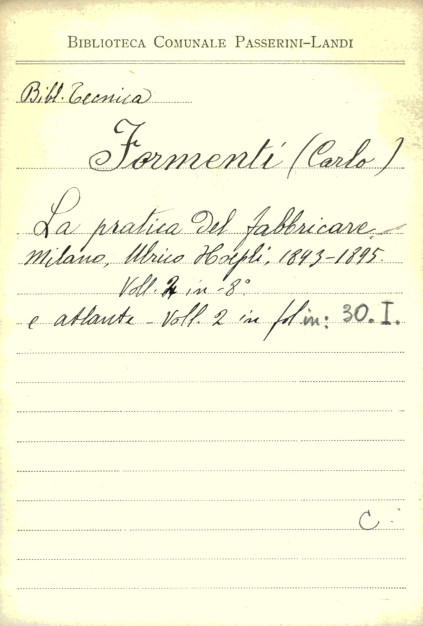 BIBLIOTECA COMUNALE PASSERINI-LANDI
Bibl. Tecnica
Formenti (Carlo)
La pratica del fabbricare.
Milano, Ulrico Hoepli, 1893-1895.
Voll. 2 in-8°
e atlante - Voll. 2 in fol. in: 30. I.
C.